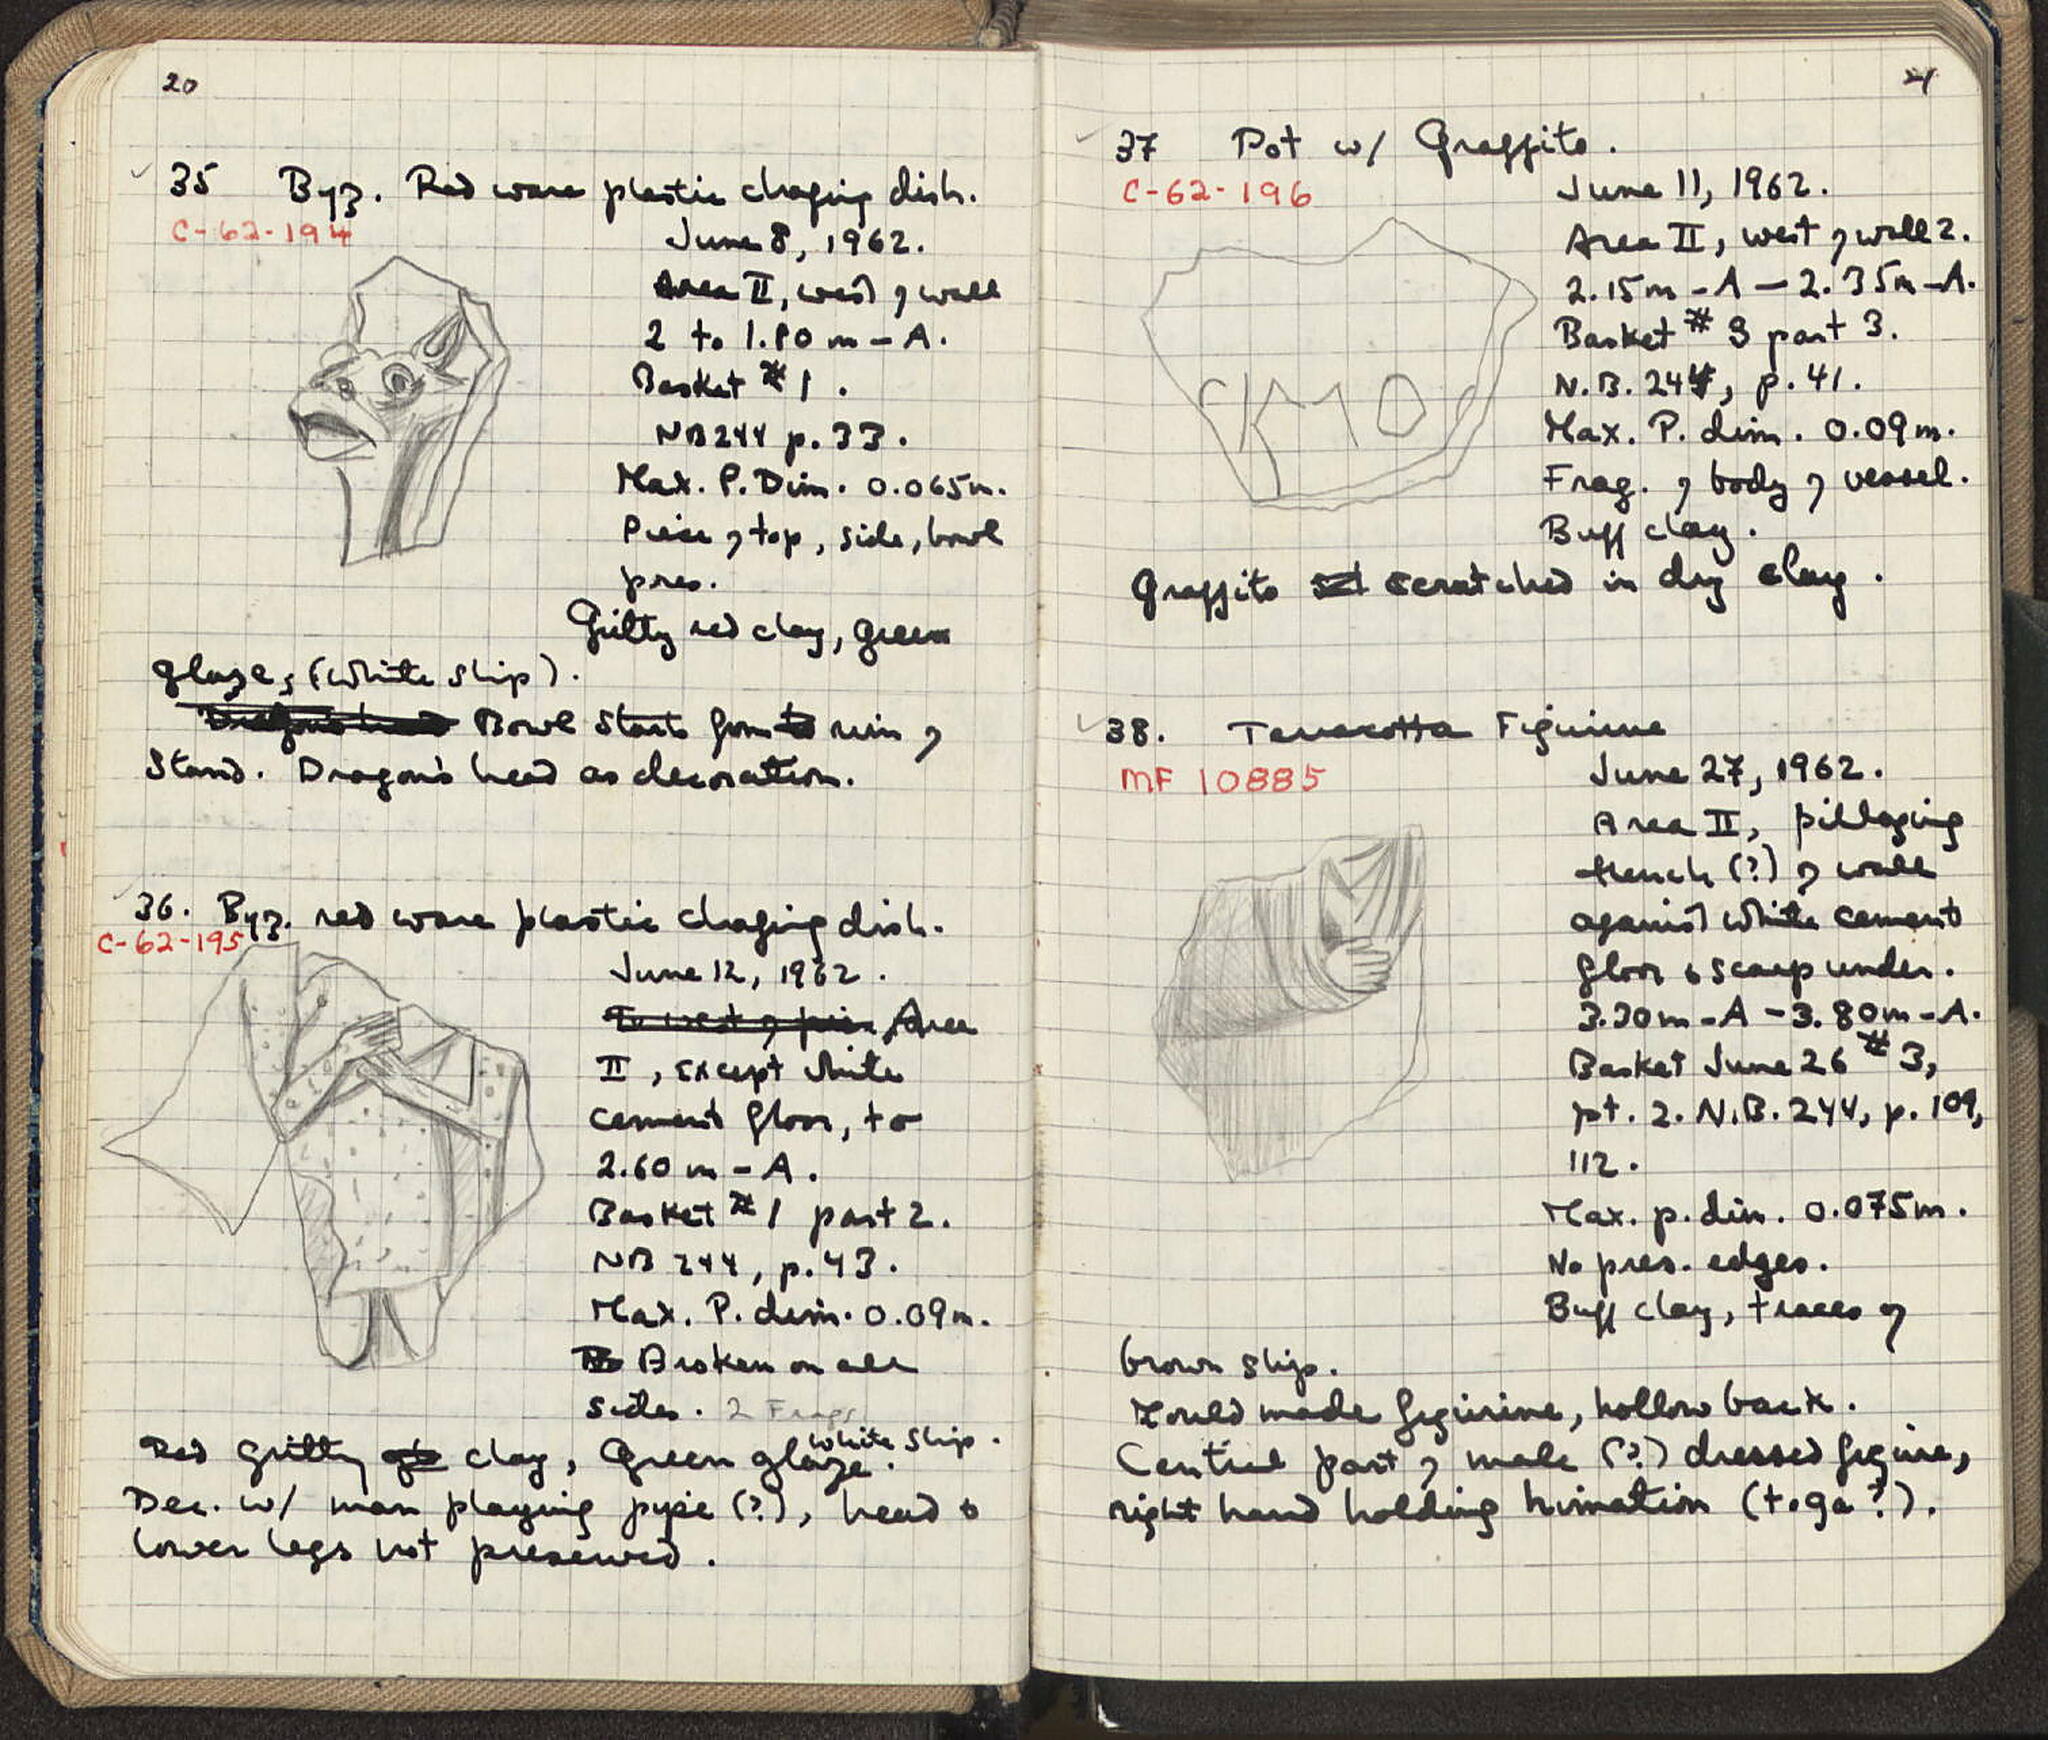 20
35 Byz. Red ware plastic chafing dish.
C-62-194
June 8, 1962.
Area II, west of wall
2 to 1.80 m - A.
Basket #1.
NB 244 p. 33.
Max. P. Dim. 0.065m.
Piece of top, side, bowl
pres.
Gritty red clay, green
glaze, (white slip).
Dragon's head Bowl starts from rim of
stand. Dragon's head as decoration.
36. Byz. red ware plastic chafing dish.
C-62-195
June 12, 1962.
To west of pier Area
II, except white
cement floor, to
2.60 m - A.
Basket #1 part 2.
NB 244, p. 43.
Max. P. dim. 0.09m.
Broken on all
sides. 2 Frags
Red gritty clay, Green glaze. white slip.
Dec. w/ man playing pipe (?), head &
lower legs not preserved.
21
37 Pot w/ Graffito.
C-62-196
June 11, 1962.
Area II, west of wall 2.
2.15m - A — 2.35m - A.
Basket #3 part 3.
N.B. 244, p. 41.
Max. P. dim. 0.09m.
Frag. of body of vessel.
Buff clay.
Graffito scratched in dry clay.
38. Terracotta Figurine
MF 10885
June 27, 1962.
Area II, pillaging
trench (?) of wall
against white cement
floor & scarp under.
3.30m - A - 3.80m - A.
Basket June 26 #3,
pt. 2. N.B. 244, p. 109,
112.
Max. p. dim. 0.075m.
No pres. edges.
Buff clay, traces of
brown slip.
Mould made figurine, hollow back.
Central part of male (?) dressed figure,
right hand holding himation (toga?).